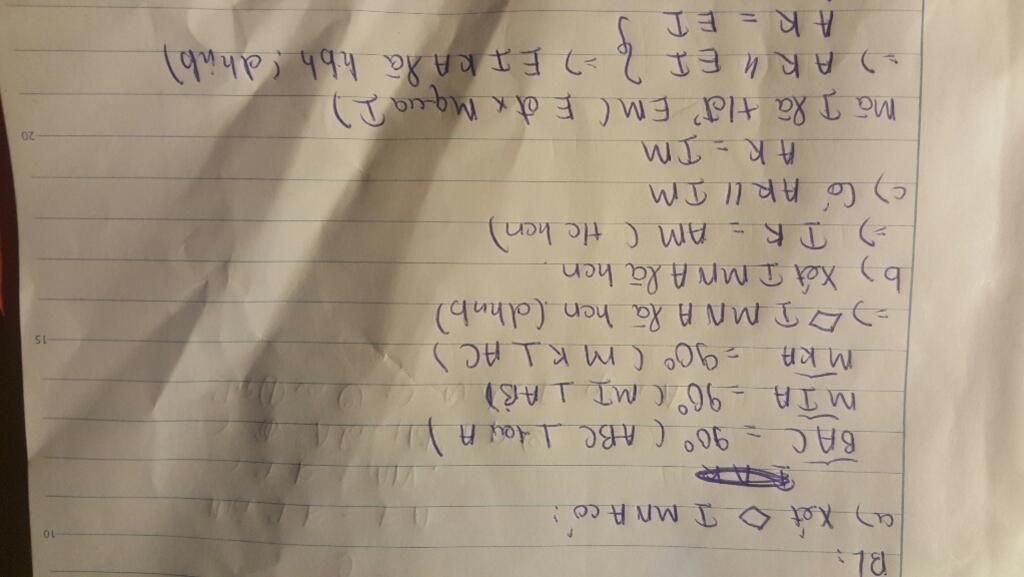 BL:
a) Xét ◇ IMNA có:
BAC = 90° (ABC ⊥ tại A)
MIA = 90° (MI ⊥ AB)
MKA = 90° (MK ⊥ AC)
=> ◇ IMNA là hcn (dhnb)
b) Xét IMNA là hcn.
=> IK = AM (tc hcn)
c) Có AK // IM
AK = IM
Mà I là tđ EM (E đx M qua I)
=> AK // EI } => EIKA là hbh (dhnb)
AK = EI }
10
15
20